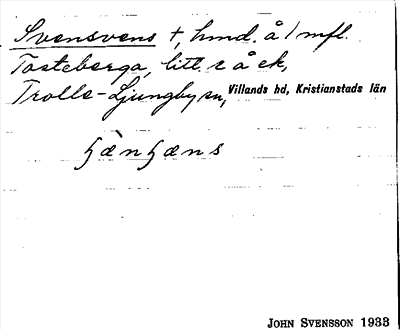 Svensvens †, hmd. å 1 mfl.
Tosteberga, litt. c å ek,
Trolle-Ljungby sn, Villands hd, Kristianstads län
JOHN SVENSSON 1933